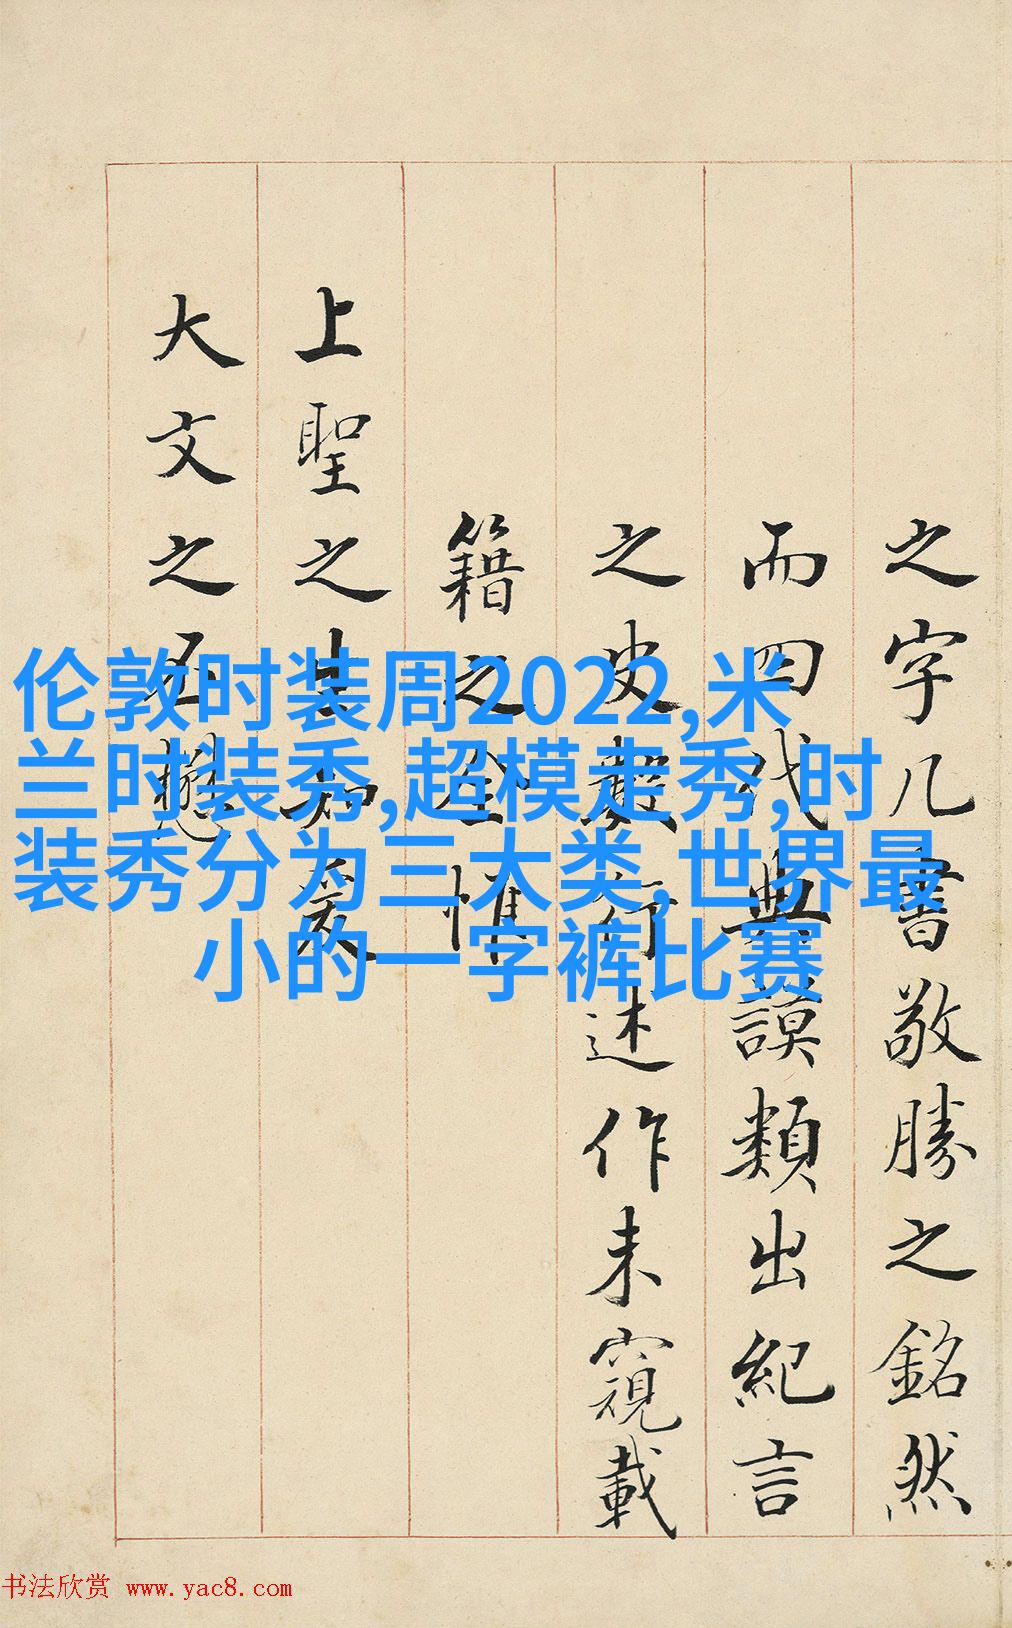 伦敦时装周2022,米
兰时装秀,超模走秀,时
装秀分为三大类,世界最
小的一字裤比赛
之字几書敬勝之銘然
而四代典謨類出紀言
之史數行述作未窺載
籍之全惟
上聖之生知爰
大文之丕懋
书法欣赏 www.yac8.com